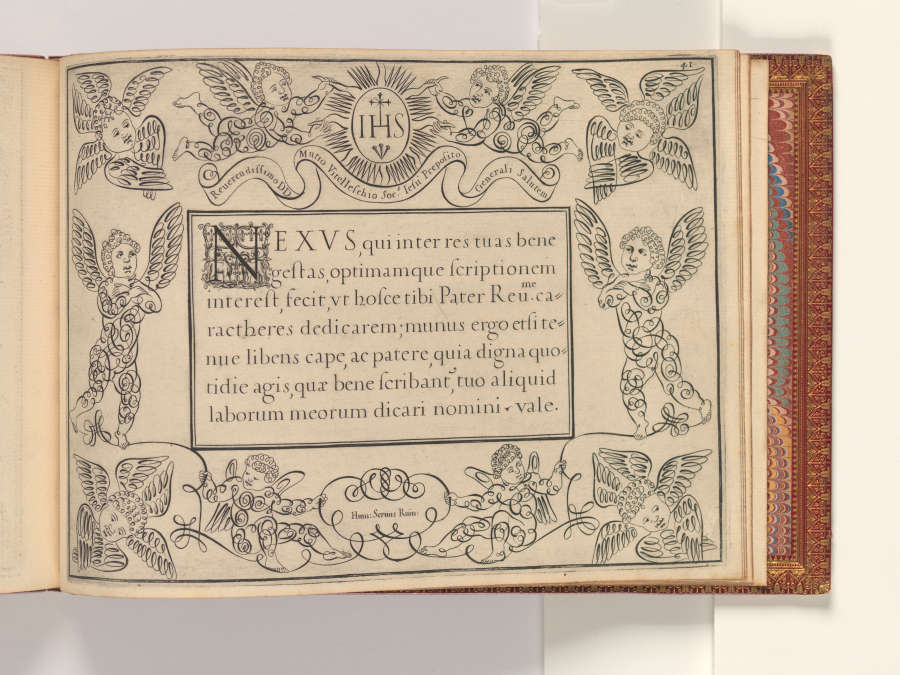 41
IHS
Reuerendissimo D.D. Mutio Vitelleschio Soc.s Iesu Preposito Generali Salutem
NEXVS, qui inter res tuas bene
gestas, optimamque scriptionem
interest, fecit, vt hosce tibi Pater Reu.me ca-
ractheres dedicarem; munus ergo etsi te-
nue libens cape, ac patere, quia digna quo-
tidie agis, quæ bene scribant', tuo aliquid
laborum meorum dicari nomini. vale.
Humi: Seruus Ruin: